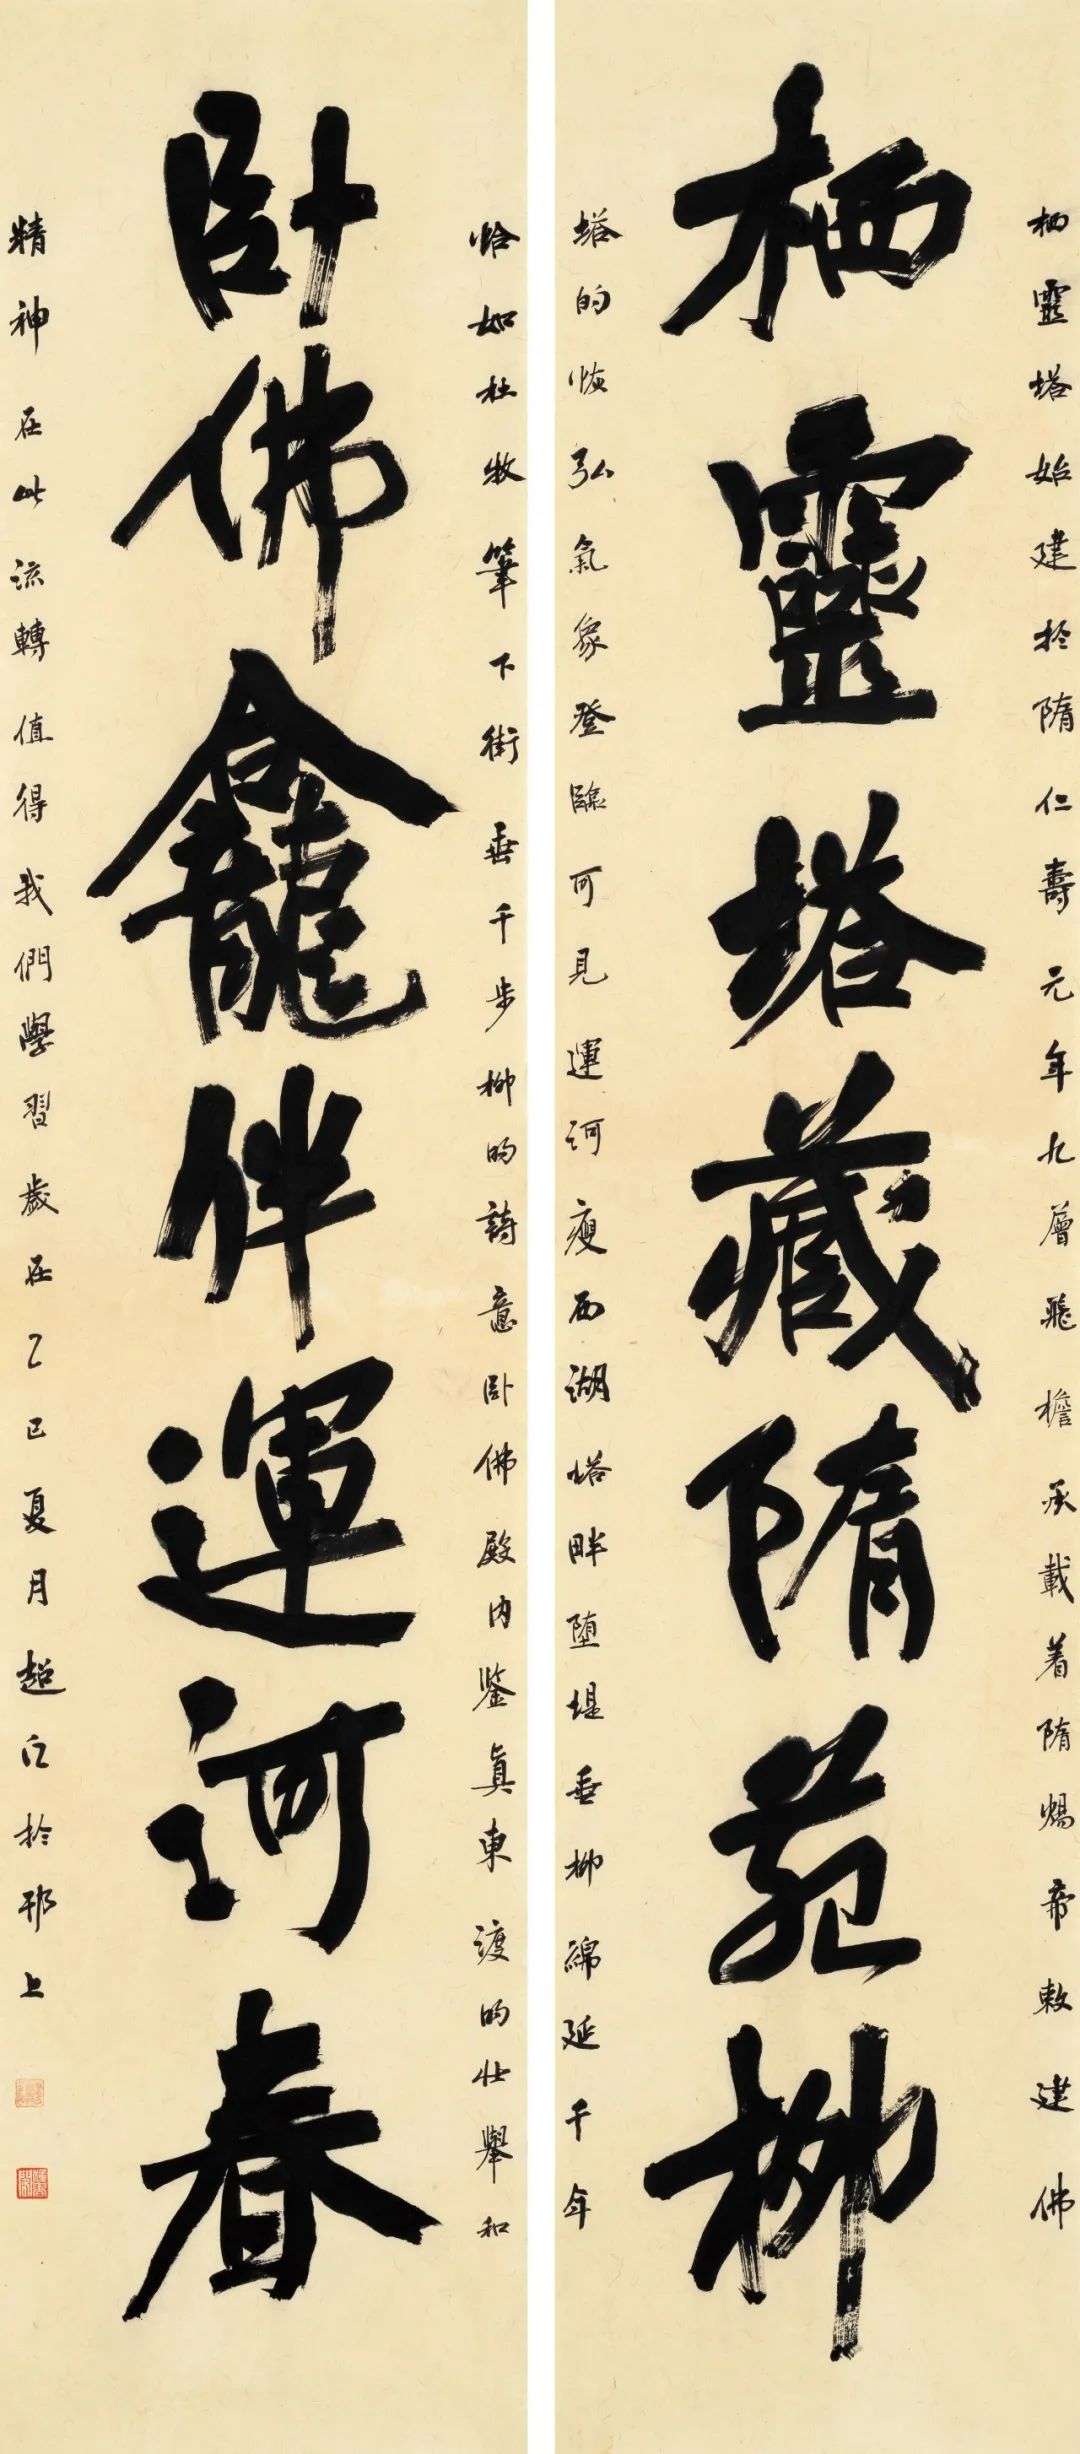 栖靈塔始建於隋仁壽元年九層飛檐承載着隋煬帝敕建佛
栖靈塔藏隋苑柳
塔的恢弘氣象登臨可見運河瘦西湖塔畔堕堤垂柳綿延千年
恰如杜牧筆下街垂千步柳的詩意卧佛殿内鑒真東渡的壯舉和
卧佛龕伴運河春
精神在此流轉值得我們學習歲在乙巳夏月超於邗上